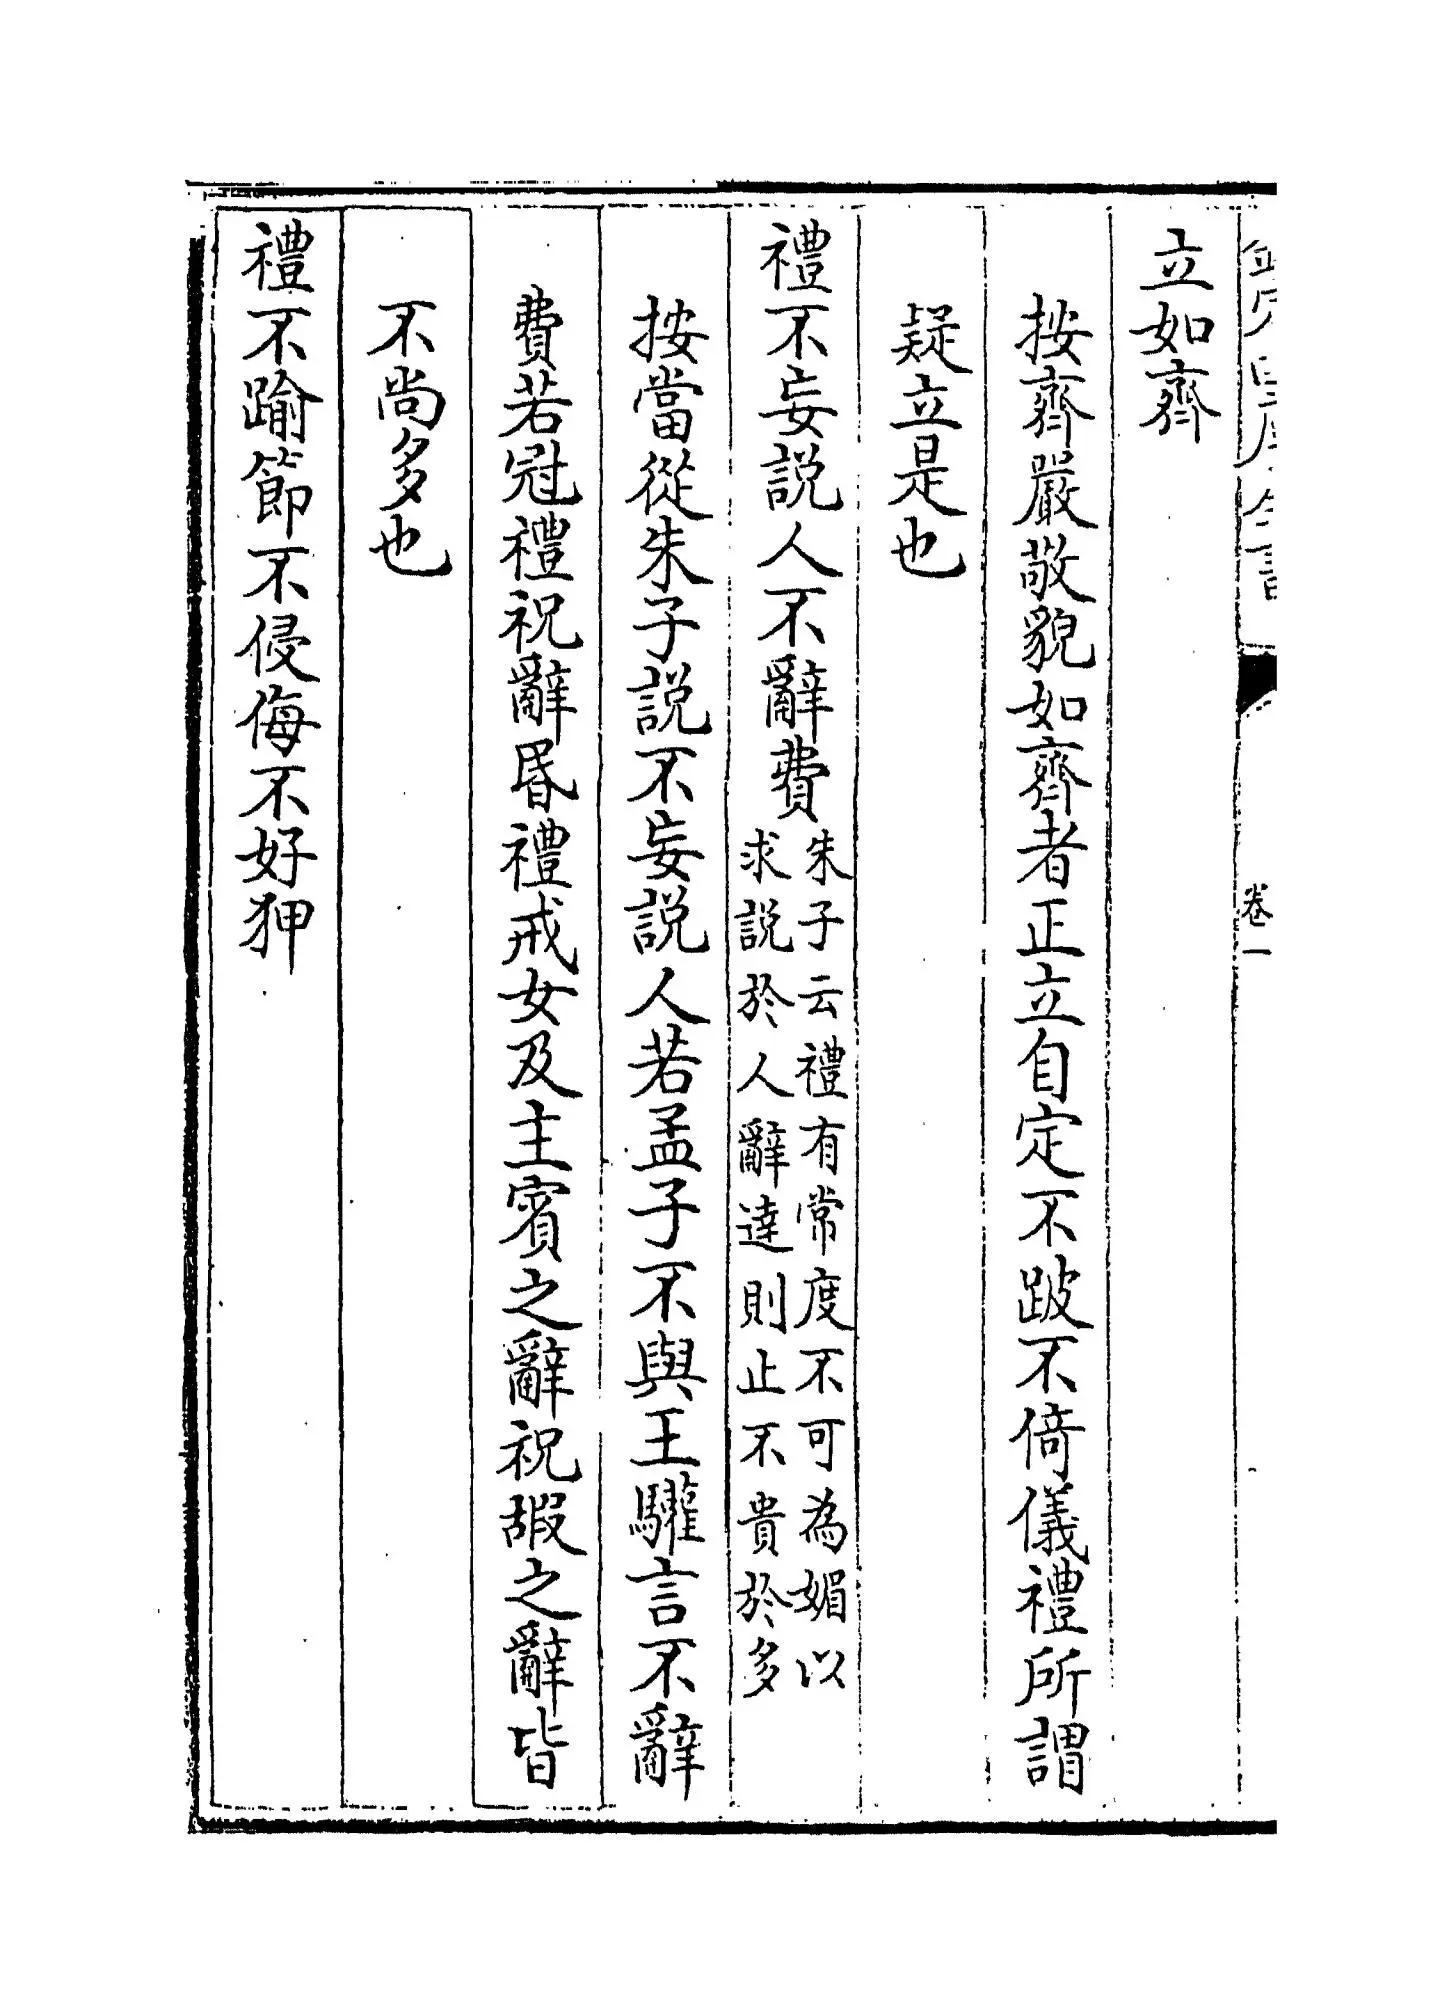 欽定四庫全書
卷一
立如齊
按齊嚴敬貌如齊者正立自定不跛不倚儀禮所謂
疑立是也
禮不妄説人不辭費朱子云禮有常度不可為媚以
求説於人辭達則止不貴於多
按當從朱子説不妄説人若孟子不與王驩言不辭
費若冠禮祝辭昏禮戒女及主賓之辭祝嘏之辭皆
不尚多也
禮不踰節不侵侮不好狎